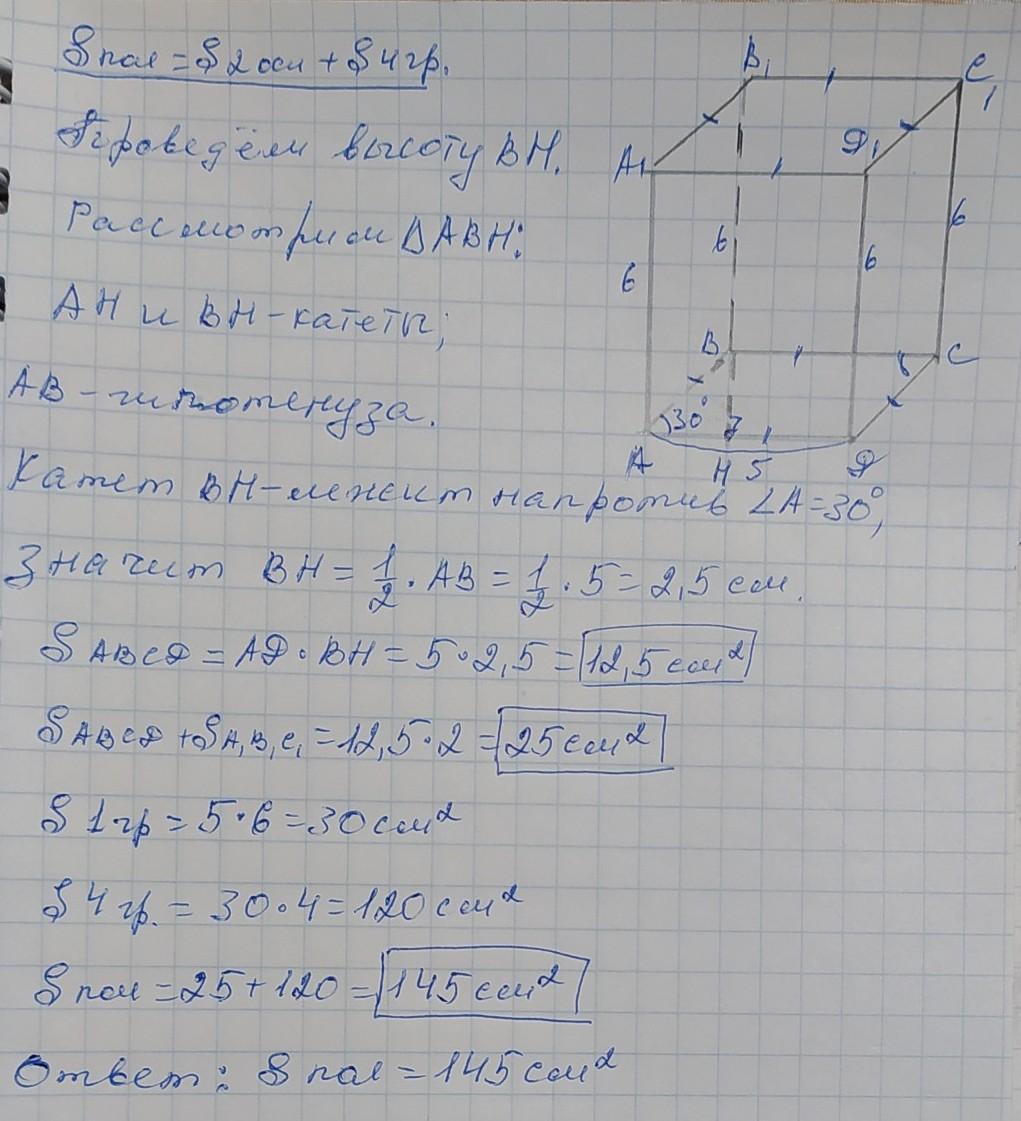 Sпол = S2осн + S4гр.
Проведём высоту BH.
Рассмотрим ΔABH:
AH и BH - катеты;
AB - гипотенуза.
Катет BH - лежит напротив ∠A = 30°,
Значит BH = 1/2 · AB = 1/2 · 5 = 2,5 см.
SABCD = AD · BH = 5 · 2,5 = 12,5 см²
SABCD + SA₁B₁C₁ = 12,5 · 2 = 25 см²
S1гр = 5 · 6 = 30 см²
S4гр. = 30 · 4 = 120 см²
Sпол = 25 + 120 = 145 см²
Ответ: Sпол = 145 см²
B₁
C₁
A₁
D₁
6
6
6
6
B
C
30°
A
H
5
D